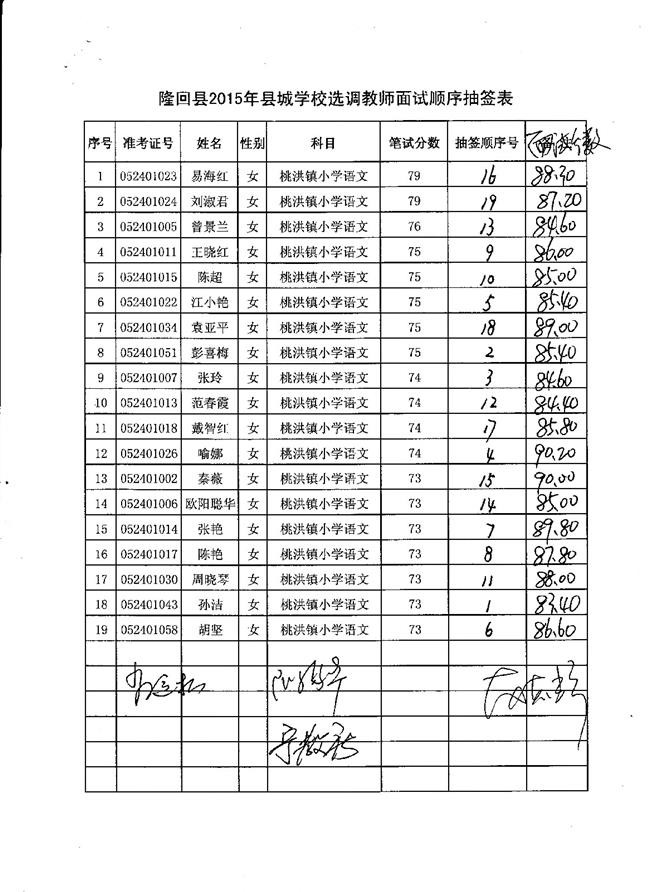 隆回县2015年县城学校选调教师面试顺序抽签表
序号 准考证号 姓名 性别 科目 笔试分数 抽签顺序号 面试分数
1 052401023 易海红 女 桃洪镇小学语文 79 16 88.30
2 052401024 刘淑君 女 桃洪镇小学语文 79 19 87.20
3 052401005 曾景兰 女 桃洪镇小学语文 76 13 84.60
4 052401011 王晓红 女 桃洪镇小学语文 75 9 86.00
5 052401015 陈超 女 桃洪镇小学语文 75 10 85.00
6 052401022 江小艳 女 桃洪镇小学语文 75 5 85.40
7 052401034 袁亚平 女 桃洪镇小学语文 75 18 89.00
8 052401051 彭喜梅 女 桃洪镇小学语文 75 2 85.40
9 052401007 张玲 女 桃洪镇小学语文 74 3 84.60
10 052401013 范春霞 女 桃洪镇小学语文 74 12 84.40
11 052401018 戴智红 女 桃洪镇小学语文 74 17 85.80
12 052401026 喻娜 女 桃洪镇小学语文 74 4 90.20
13 052401002 秦薇 女 桃洪镇小学语文 73 15 90.00
14 052401006 欧阳聪华 女 桃洪镇小学语文 73 14 85.00
15 052401014 张艳 女 桃洪镇小学语文 73 7 89.80
16 052401017 陈艳 女 桃洪镇小学语文 73 8 87.80
17 052401030 周晓琴 女 桃洪镇小学语文 73 11 88.00
18 052401043 孙洁 女 桃洪镇小学语文 73 1 83.40
19 052401058 胡坚 女 桃洪镇小学语文 73 6 86.60